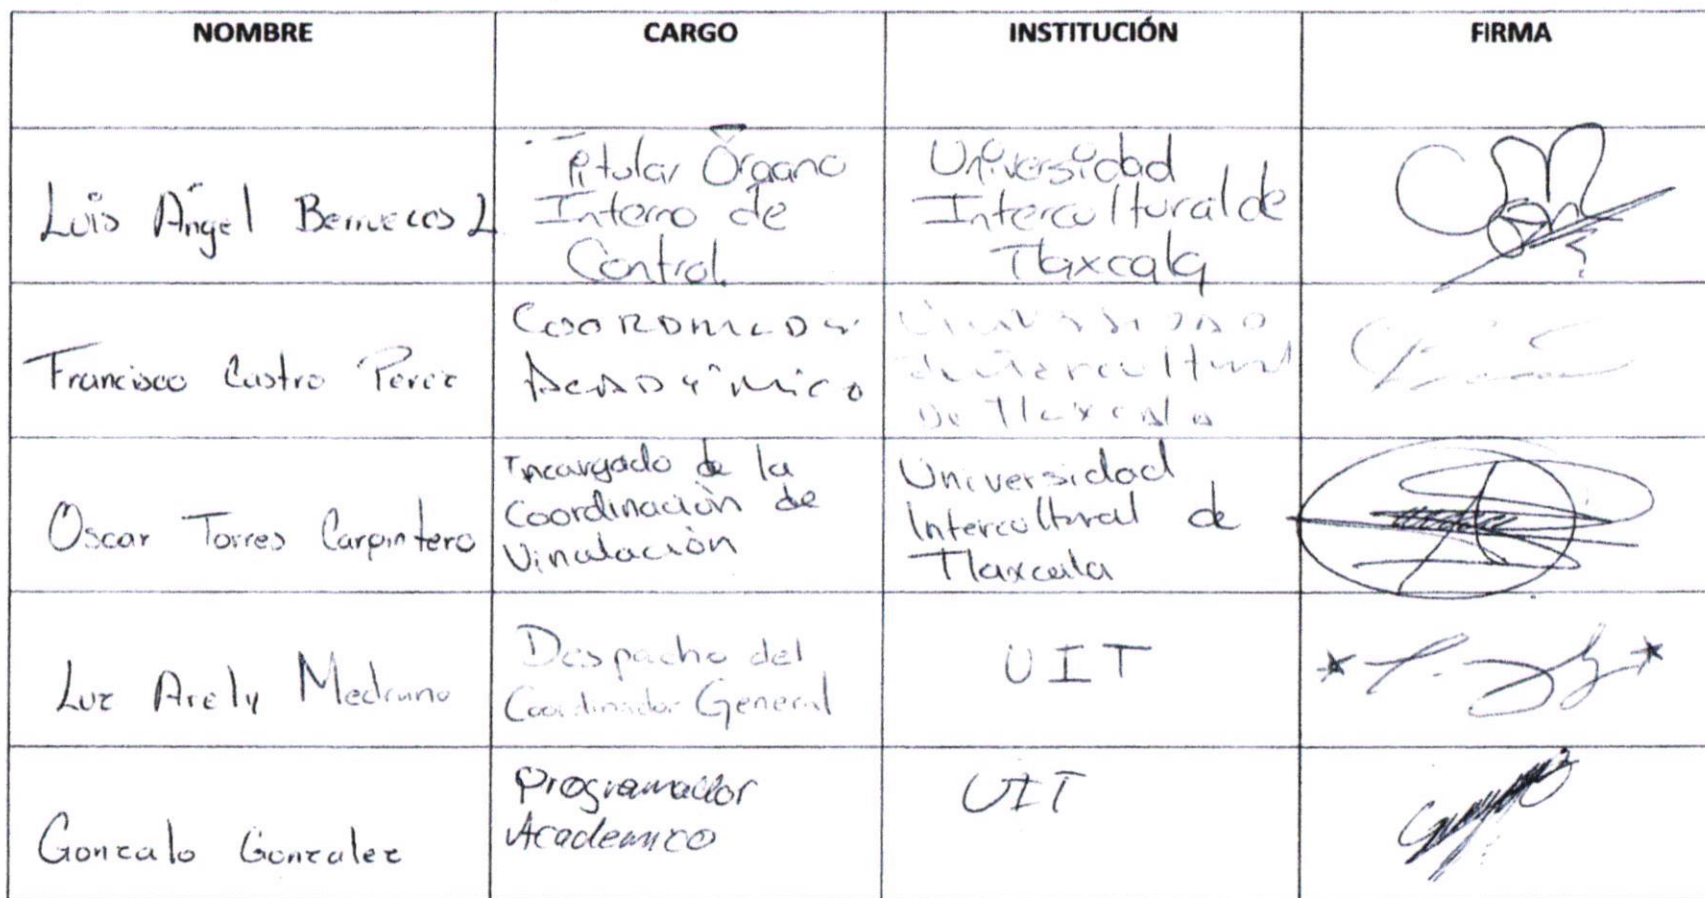 NOMBRE CARGO INSTITUCIÓN FIRMA
Luis Ángel Berruecos L
Titular Órgano
Interno de
Control.
Universidad
Intercultural de
Tlaxcala
Francisco Castro Perez
COORDINADOR
ACADÉMICO
Universidad
Intercultural
De Tlaxcala
Oscar Torres Carpintero
Encargado de la
Coordinación de
Vinculación
Universidad
Intercultural de
Tlaxcala
Luz Arely Medrano
Despacho del
Coordinador General
UIT
Gonzalo Gonzalez
Programador
Academico
UIT